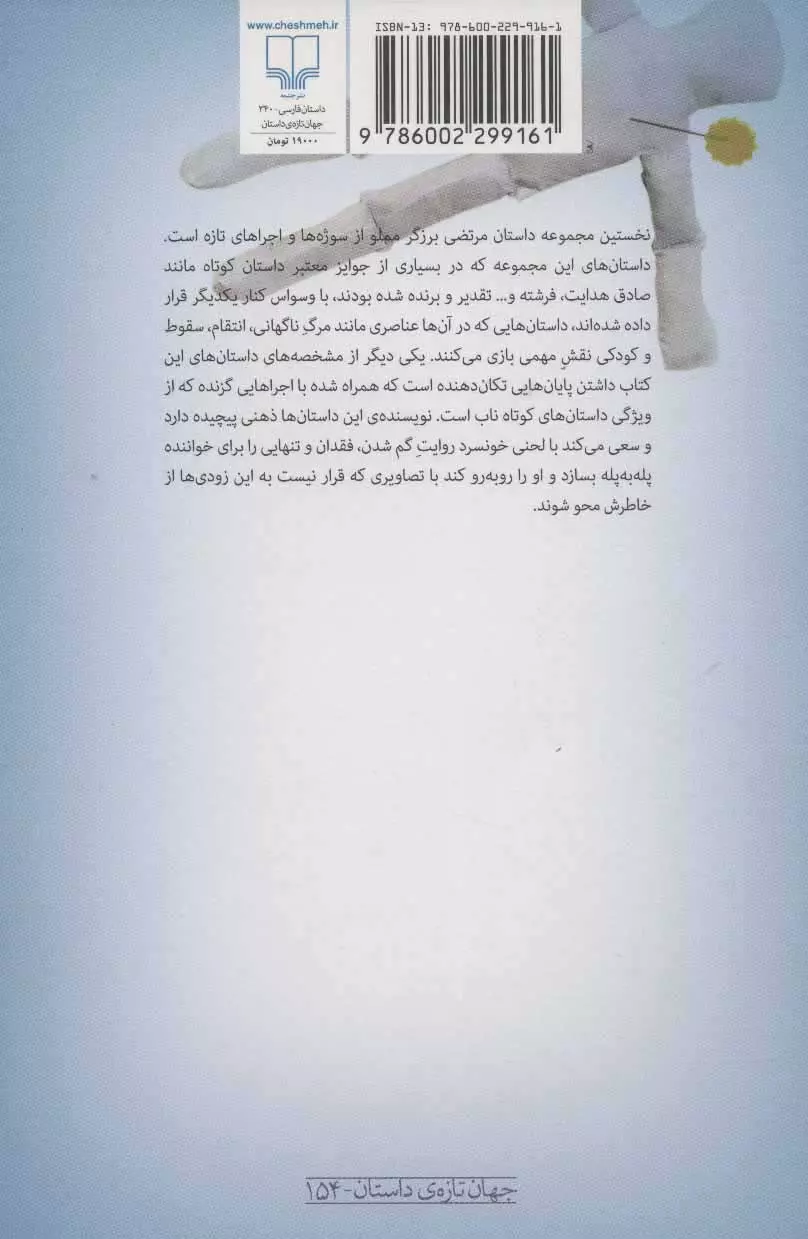 www.cheshmeh.ir
نشر چشمه
داستان فارسی - ۲۴۰
جهان تازه‌ی داستان
۱۹۰۰۰ تومان
ISBN-13: 978-600-229-916-1
9 786002 299161
نخستین مجموعه داستان مرتضی برزگر مملو از سوژه‌ها و اجراهای تازه است.
داستان‌های این مجموعه که در بسیاری از جوایز معتبر داستان کوتاه مانند
صادق هدایت، فرشته و... تقدیر و برنده شده بودند، با وسواس کنار یکدیگر قرار
داده شده‌اند، داستان‌هایی که در آن‌ها عناصری مانند مرگِ ناگهانی، انتقام، سقوط
و کودکی نقشِ مهمی بازی می‌کنند. یکی دیگر از مشخصه‌های داستان‌های این
کتاب داشتن پایان‌هایی تکان‌دهنده است که همراه شده با اجراهایی گزنده که از
ویژگی داستان‌های کوتاه ناب است. نویسنده‌ی این داستان‌ها ذهنی پیچیده دارد
و سعی می‌کند با لحنی خونسرد روایتِ گم شدن، فقدان و تنهایی را برای خواننده
پله‌به‌پله بسازد و او را روبه‌رو کند با تصاویری که قرار نیست به این زودی‌ها از
خاطرش محو شوند.
جهان تازه‌ی داستان - ۱۵۴